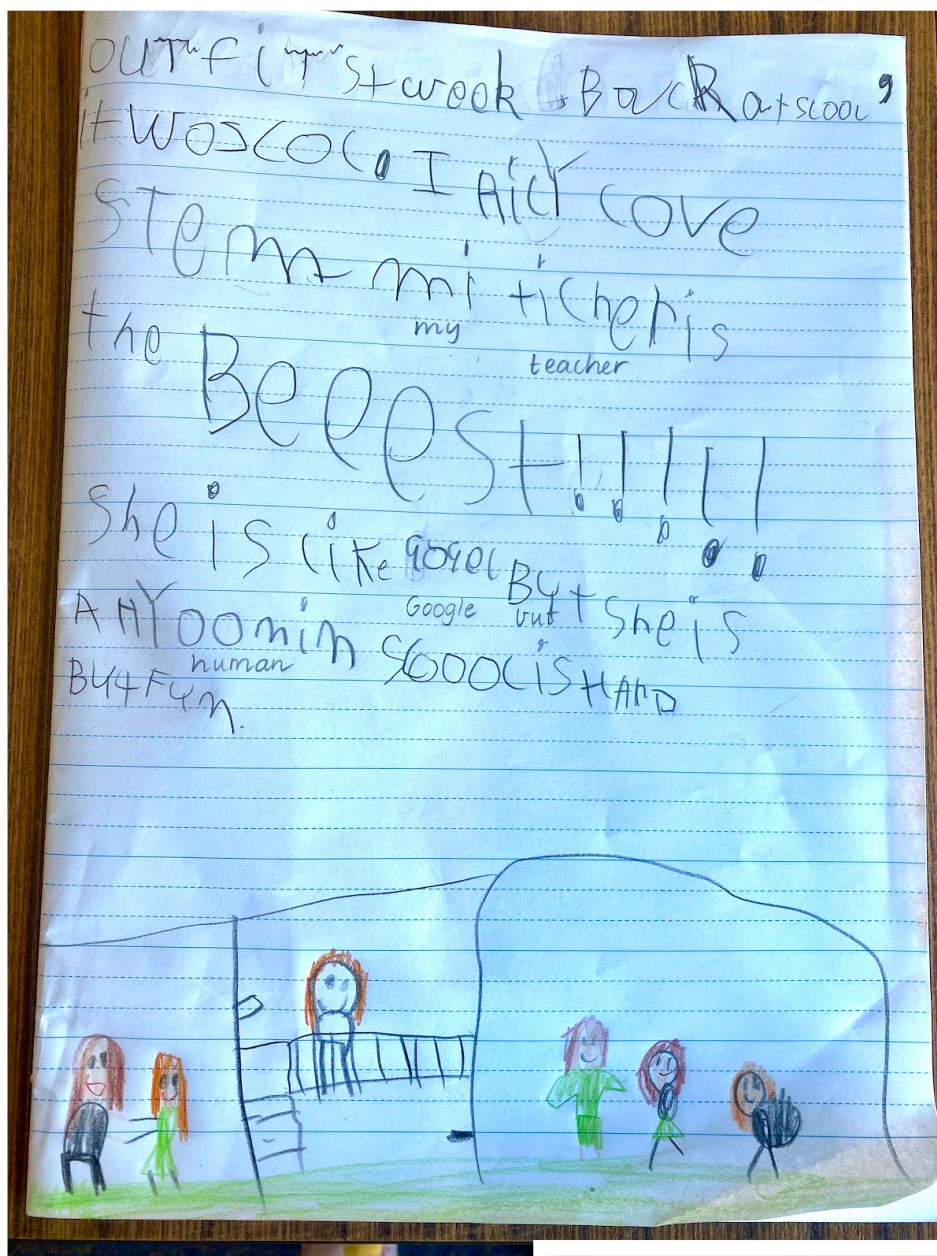 OUT fiTst week BacK at scool,
it wos cool. I AlCY Love
STem mi ticher is
my
teacher
the Beeest!!!!!
She is liKe gogel But She is
Google but
A HYoomin Scool is HARD
human
BUt FUn.